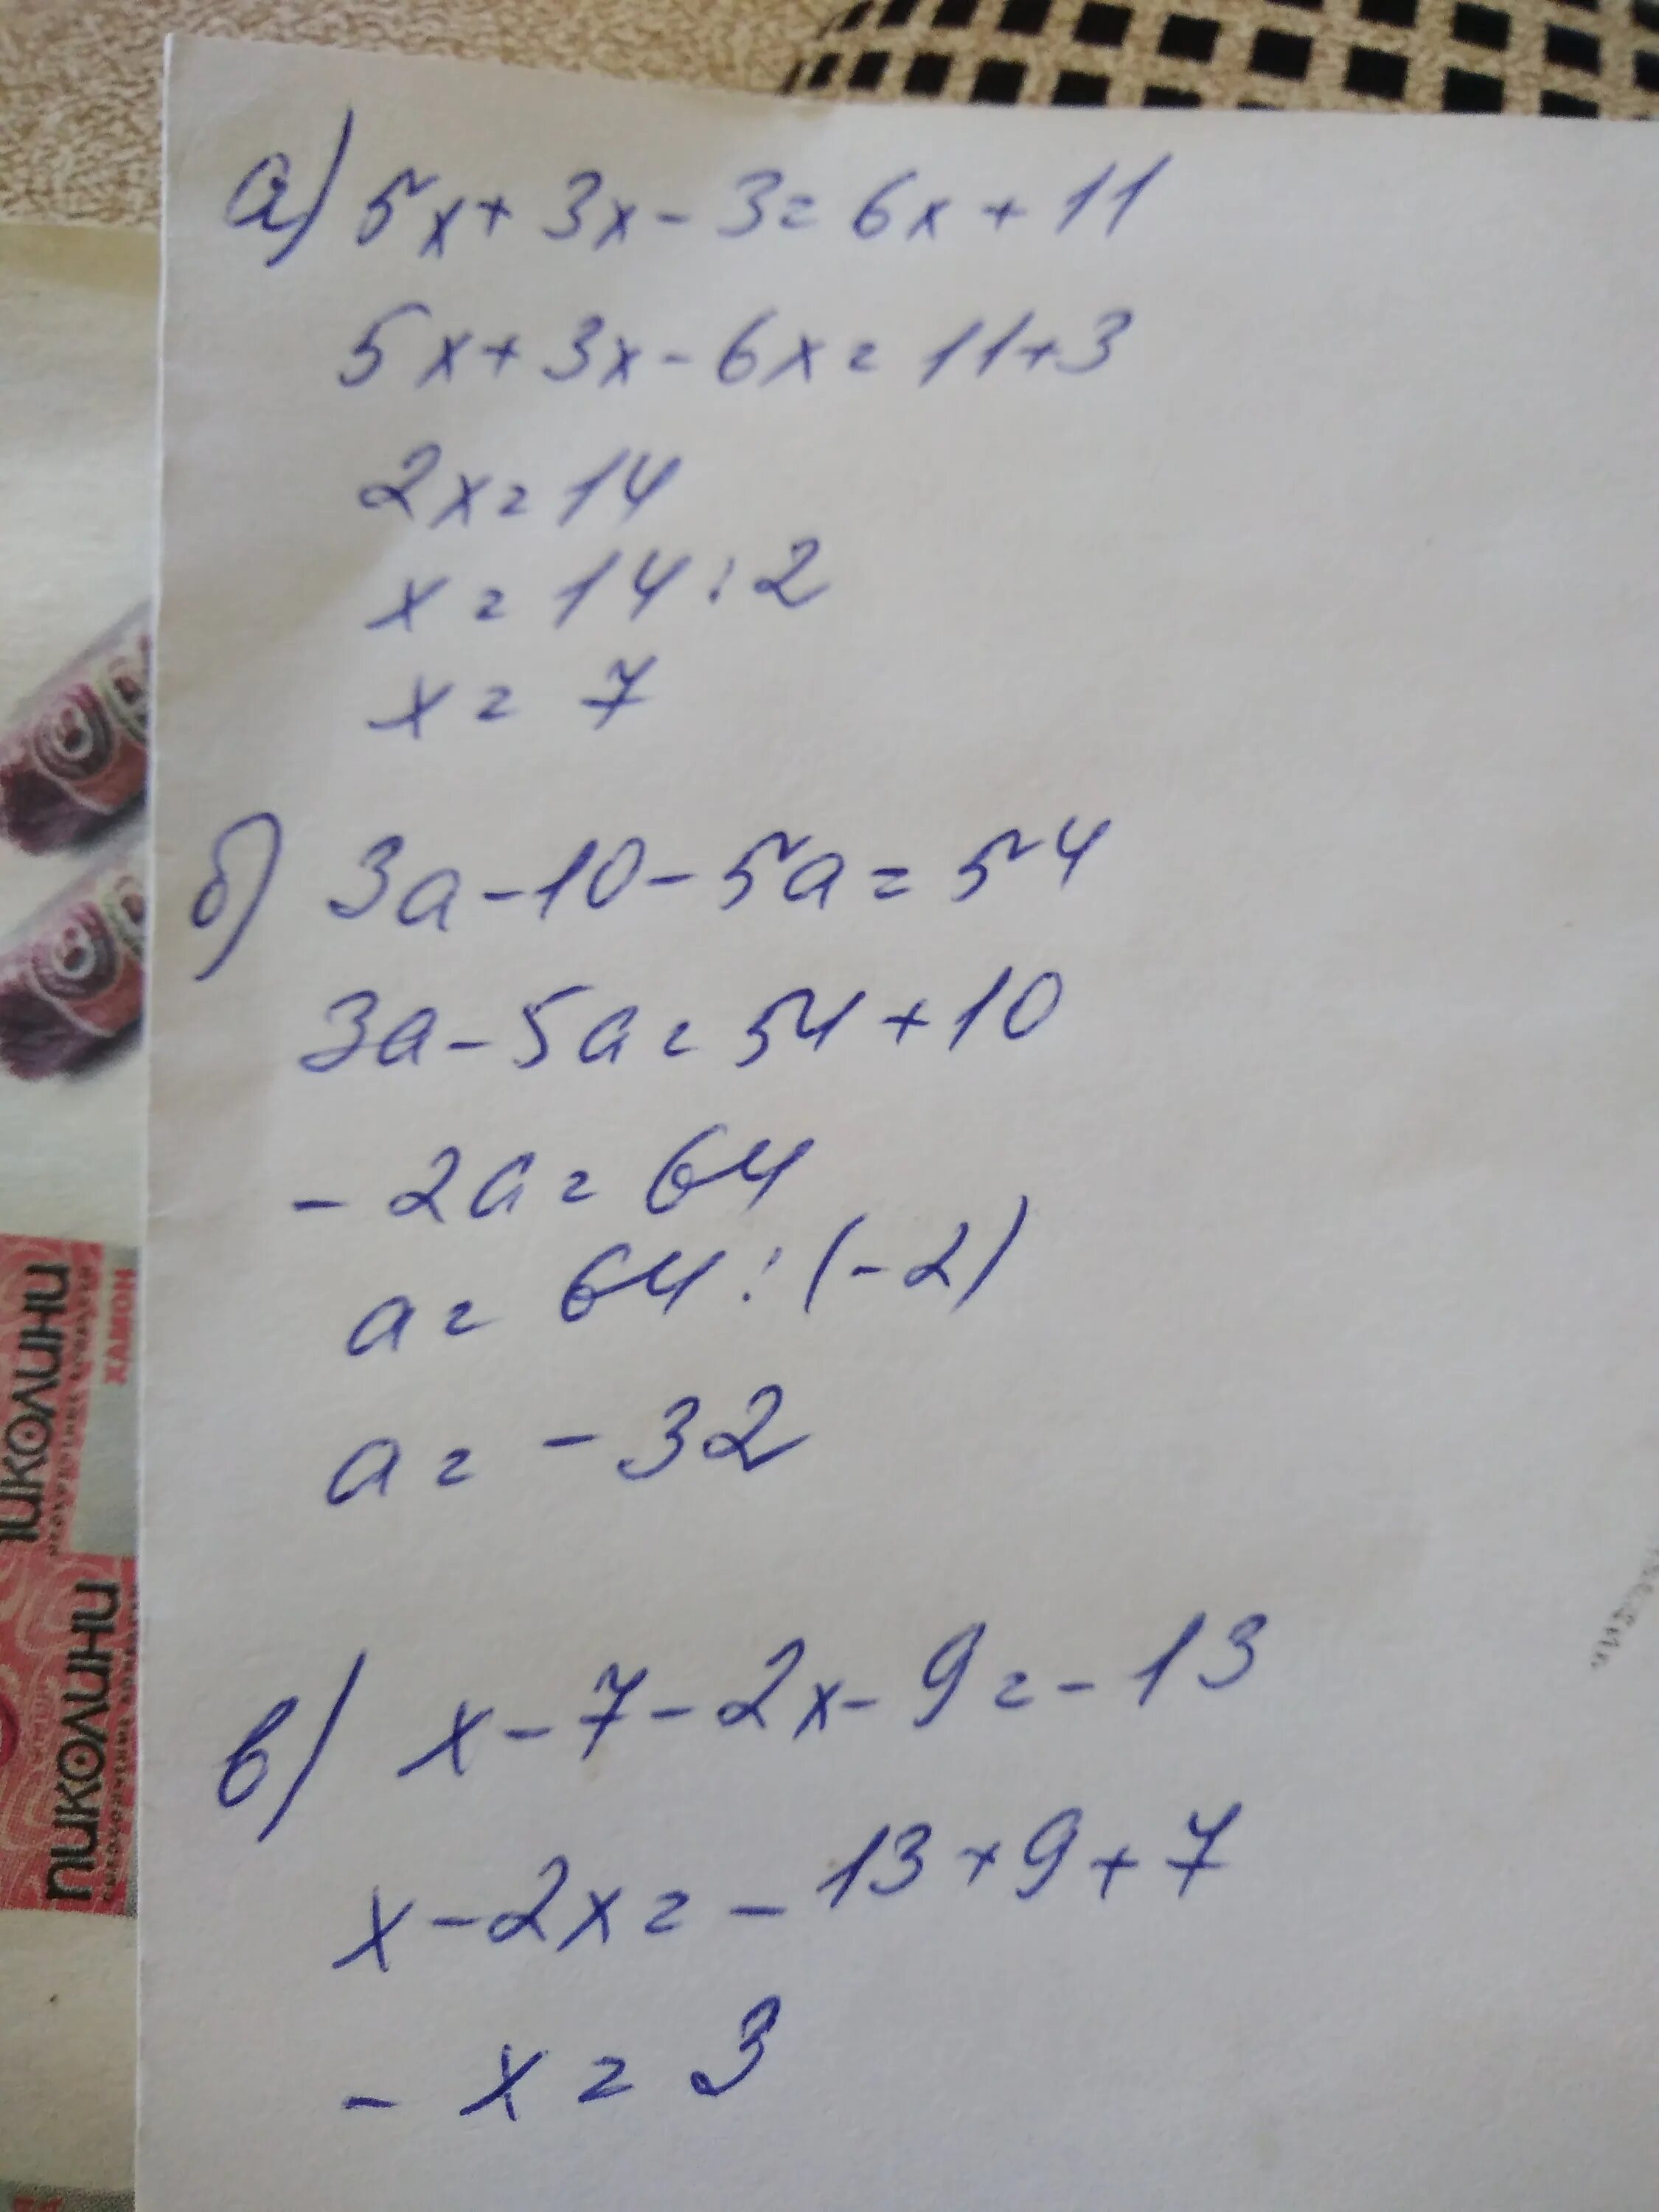 а) 5x + 3x - 3 = 6x + 11
5x + 3x - 6x = 11 + 3
2x = 14
x = 14 : 2
x = 7
б) 3a - 10 - 5a = 54
3a - 5a = 54 + 10
- 2a = 64
a = 64 : (-2)
a = - 32
в) x - 7 - 2x - 9 = - 13
x - 2x = - 13 + 9 + 7
- x = 3
ПИКОЛИНИ
ХАМОН
ПИКОЛИНИ